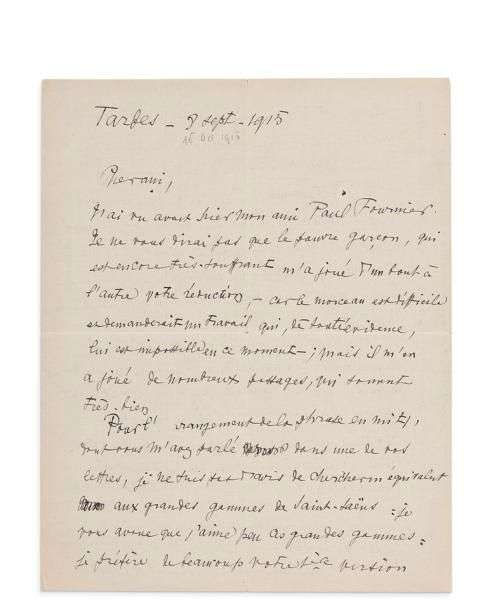 Tarbes - 8 sept - 1915
Cher ami,
J'ai vu avant hier mon ami Paul Fournier.
Je ne vous dirai pas que le pauvre garçon, qui
est encore très souffrant m'a joué d'un bout à
l'autre votre réduction, - car le morceau est difficile
et demanderait un travail qui, de toute évidence,
lui est impossible en ce moment - ; mais il m'en
a joué de nombreux passages, qui sonnent
très bien
Pour l'arrangement de la phrase en mi ♭,
dont vous m'avez parlé dans une de vos
lettres, je ne suis pas d'avis de chercher un équivalent
aux grandes gammes de Saint-Saëns : je
vous avoue que j'aime peu ces grandes gammes :
je préfère de beaucoup votre 1ère version